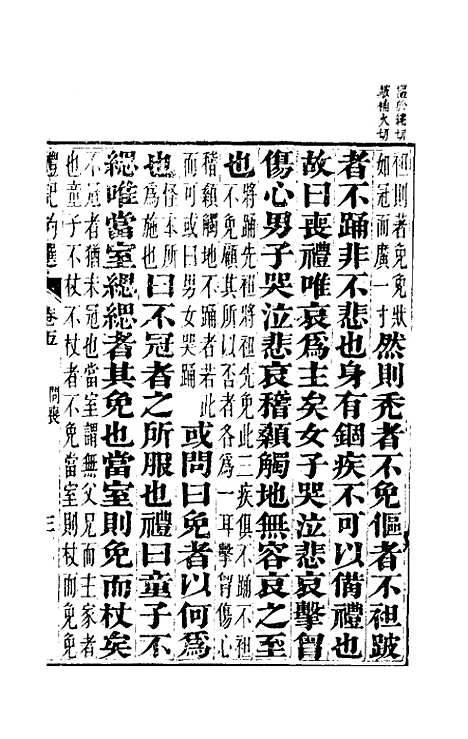 傴於縷切
跛補火切
袒則著免免狀
如冠而廣一寸
然則禿者不免傴者不袒跛
者不踊非不悲也身有錮疾不可以備禮也
故曰喪禮唯哀爲主矣女子哭泣悲哀擊胷
傷心男子哭泣悲哀稽顙觸地無容哀之至
也
將踊先袒將袒先免此三疾俱不踊不袒
不免顧其所以否者各爲一耳擊胷傷心
稽顙觸地不踊者若此
而可或曰男女哭踊
或問曰免者以何爲
也
怪本所
爲施也
曰不冠者之所服也禮曰童子不
緦唯當室緦緦者其免也當室則免而杖矣
不冠者猶未冠也當室謂無父兄而主家者
也童子不杖不杖者不免當室則杖而免免
禮記 卷五 問喪 三